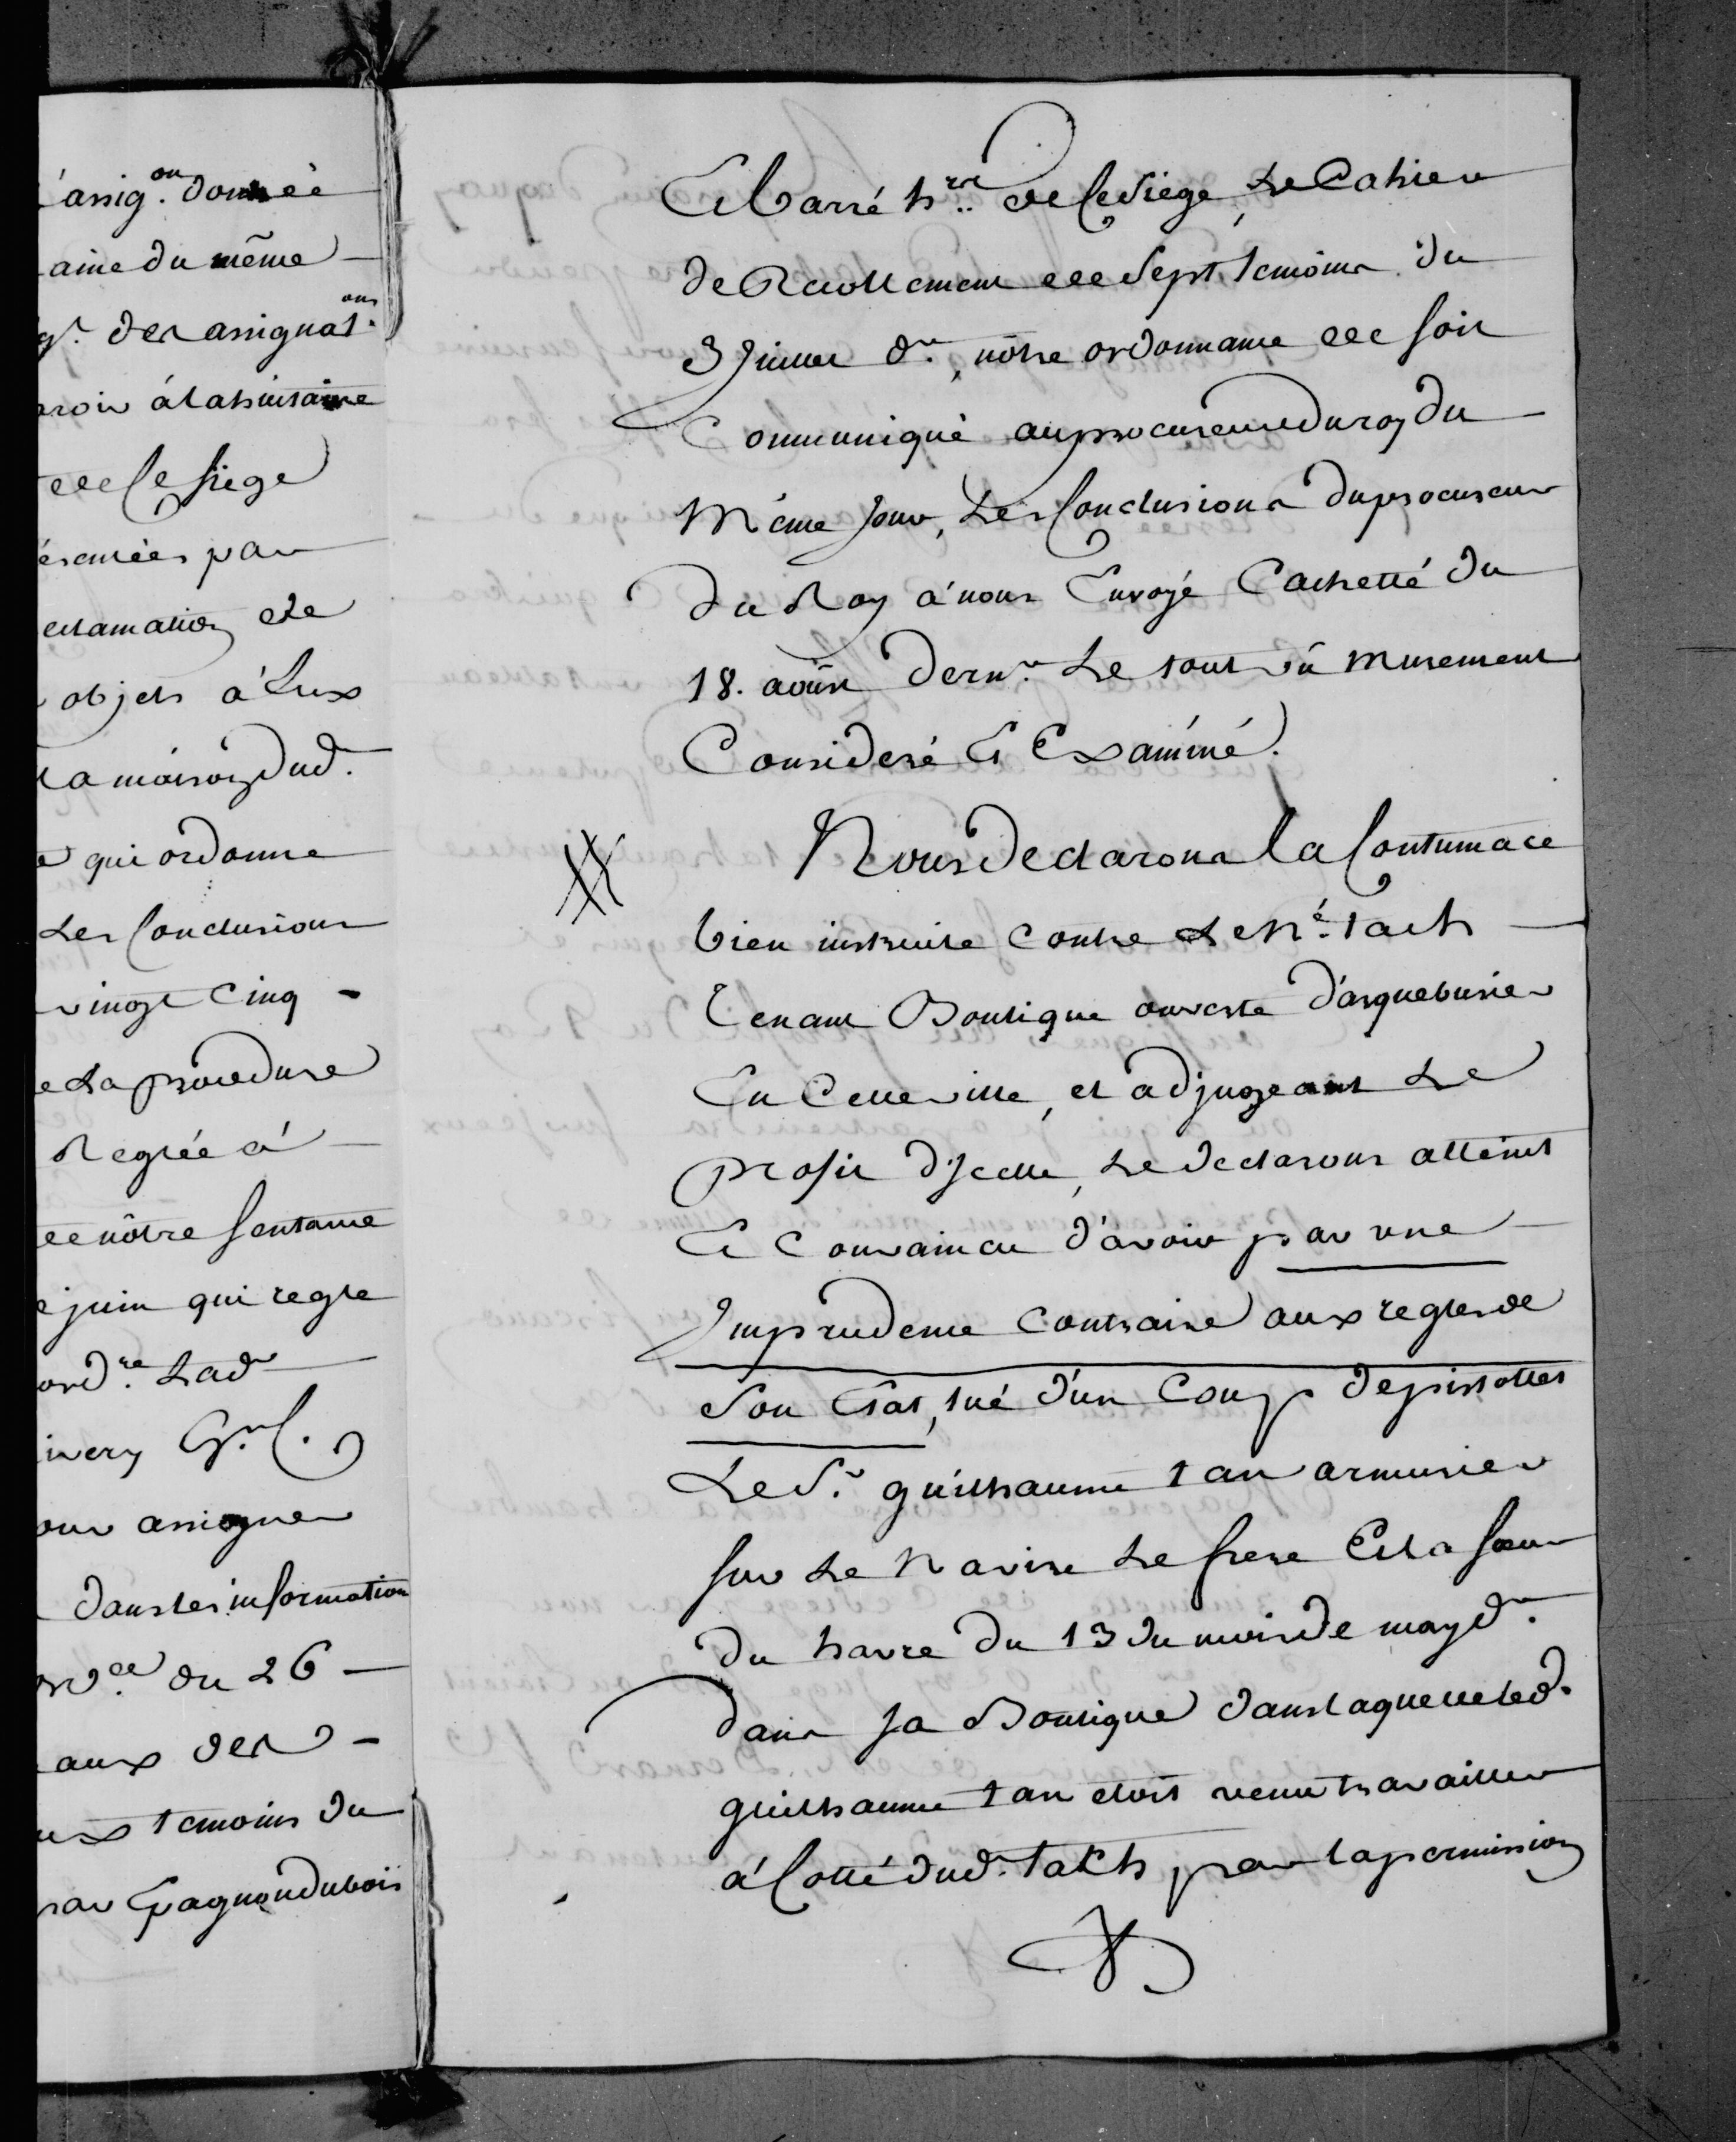 assig.on donnée
aine du même
gr. des assignat.ons
roir à la huitaine
de ce siege
ésentées par
eclamation de
objets à Lux
La maison dud.
qui ordonne
Les Conclusions
vingt Cinq -
e La procedure
Reglée à
de nôtre sentance
juin qui regle
ord.re Lad
ivery Gr.l.
our assigner
dans les information
ord.ce du 26
aux des -
ux temoins du
par Gagnondubois
Et Carré h.ers de Ce Siege, Le Cahier
de Recollement de Sept temoins du
3 Juillet d.er, nôtre ordonnance de soit
Communiqué au procureur du roy du
Même Jour, Les Conclusions du procureur
du Roy à nous Envoyé Cachetté du
18. août dern.er Le tout vû murement
Consideré Et Examiné.
Nous Declarons la Contumace
bien instruite contre Le N.é tach
Tenant Boutique ouverte d'arquebusier
En Cette ville, et adjugeant Le
Profit d'Jcelle, Le declarons atteint
Et Convaincu d'avoir par une
Imprudence Contraire aux regles de
Son Etat, tué d'un Coup de pistollet
Le S.r guilhaume tan armurier
sur Le Navire Le frere Et La soeur
du havre du 13 du mois de may d.er
dans sa Boutique dans laquelle led.
guilhaume tan etoit venu travailler
à Cotté dud. Takh, par la permission